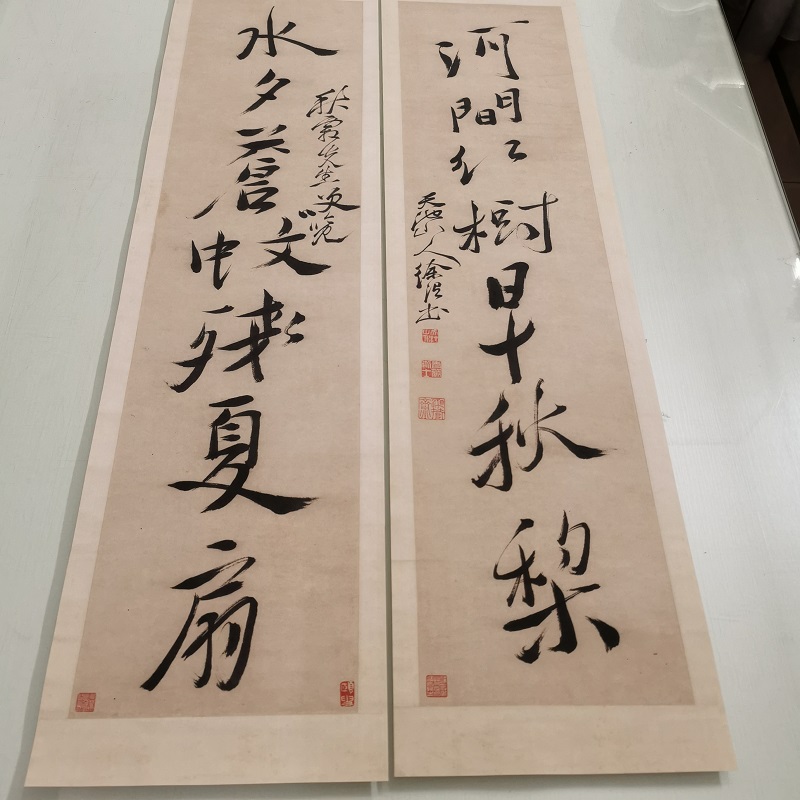 河間紅樹早秋梨
天池山人徐渭書
秋霞先生
水夕蒼蚊殘夏扇